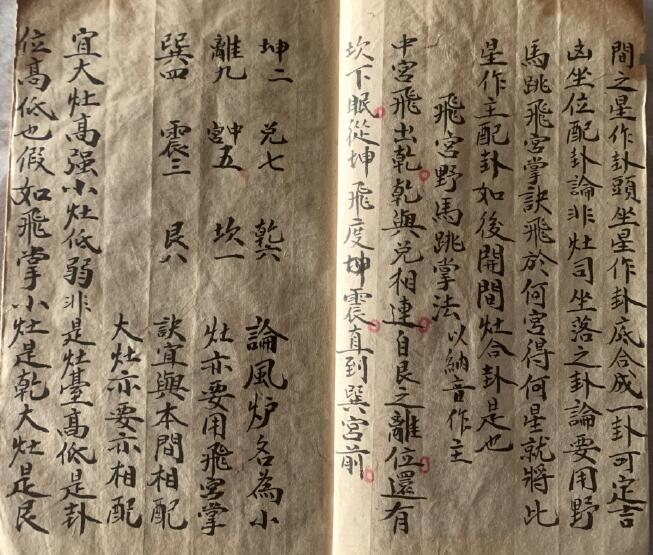 間之星作卦頭坐星作卦底合成一卦可定吉
凶坐位配卦論非灶司坐落之卦論要用野
馬跳飛宮掌訣飛於何宮得何星就將此
星作主配卦如後開間灶合卦是也
飛宮野馬跳掌法以納音作主
中宮飛出乾乾與兌相連自艮之離位還有
坎下眠從坤飛度坤震真到巽宮前
坤二 兌七 乾六
離九 中宮五 坎一
巽四 震三 艮八
論風炉名為小
灶亦要用飛宮掌
訣宜與本間相配
大灶亦要亦相配
宜大灶高强小灶低弱非是灶臺高低是卦
位高低也假如飛掌小灶是乾大灶是艮